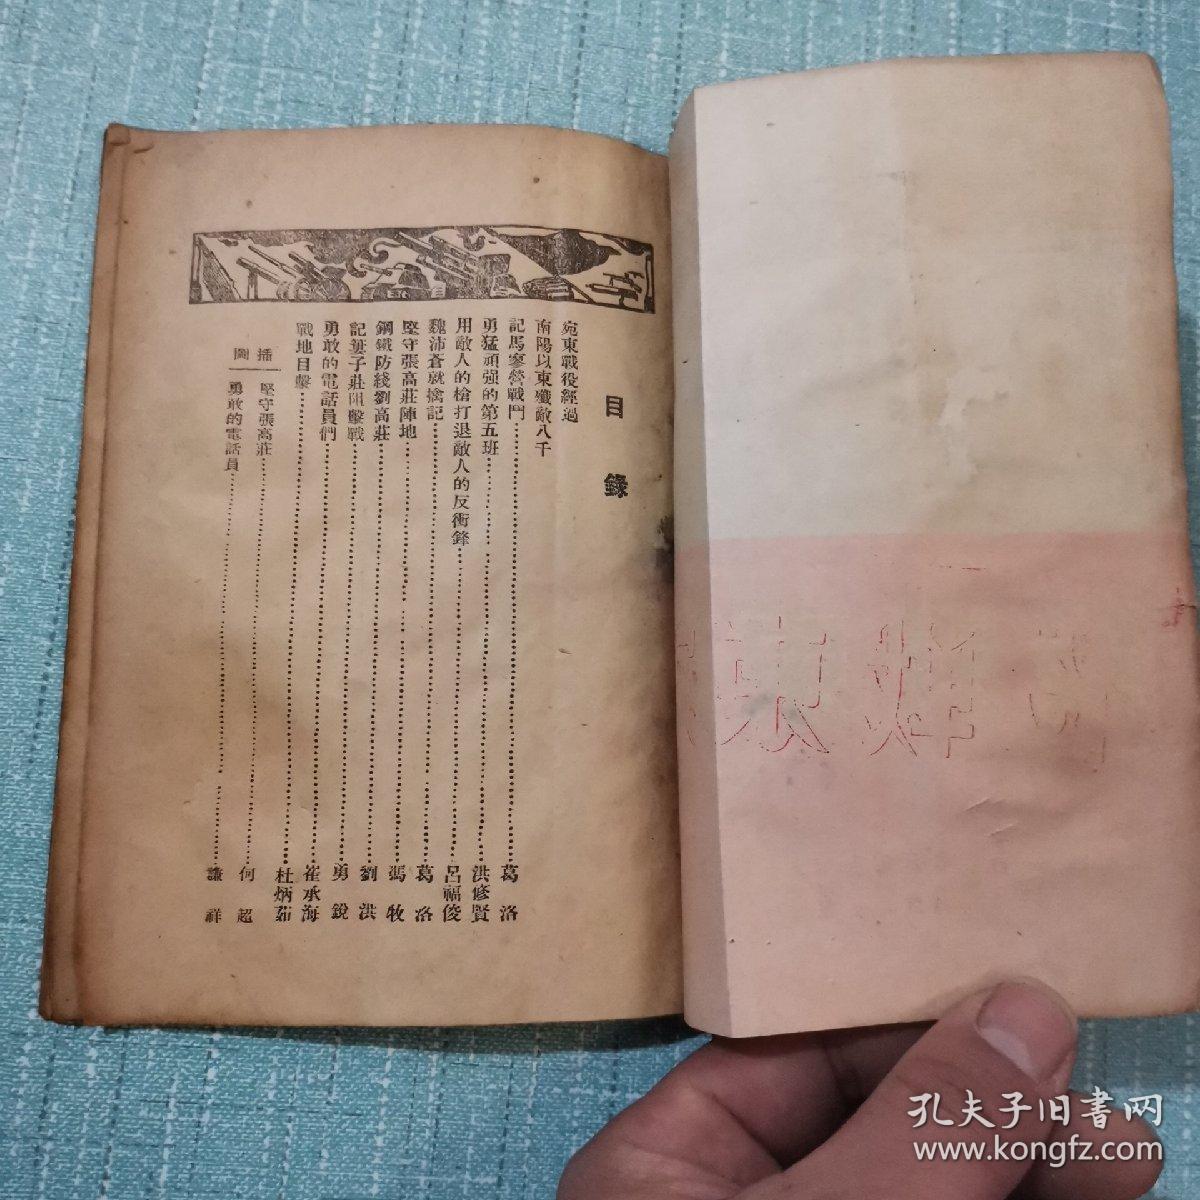 目錄
宛東戰役經過
南陽以東殲敵八千
記馬寥營戰鬥……葛洛
勇猛頑强的第五班……洪修賢
用敵人的槍打退敵人的反衝鋒……呂福俊
魏沛蒼就擒記……葛洛
堅守張高莊陣地……馮牧
鋼鐵防綫劉高莊……劉洪
記簍子莊阻擊戰……勇銳
勇敢的電話員們……崔承海
戰地目擊……杜炳茹
插圖
堅守張高莊……何超
勇敢的電話員……謙祥
孔夫子旧書网
www.kongfz.com